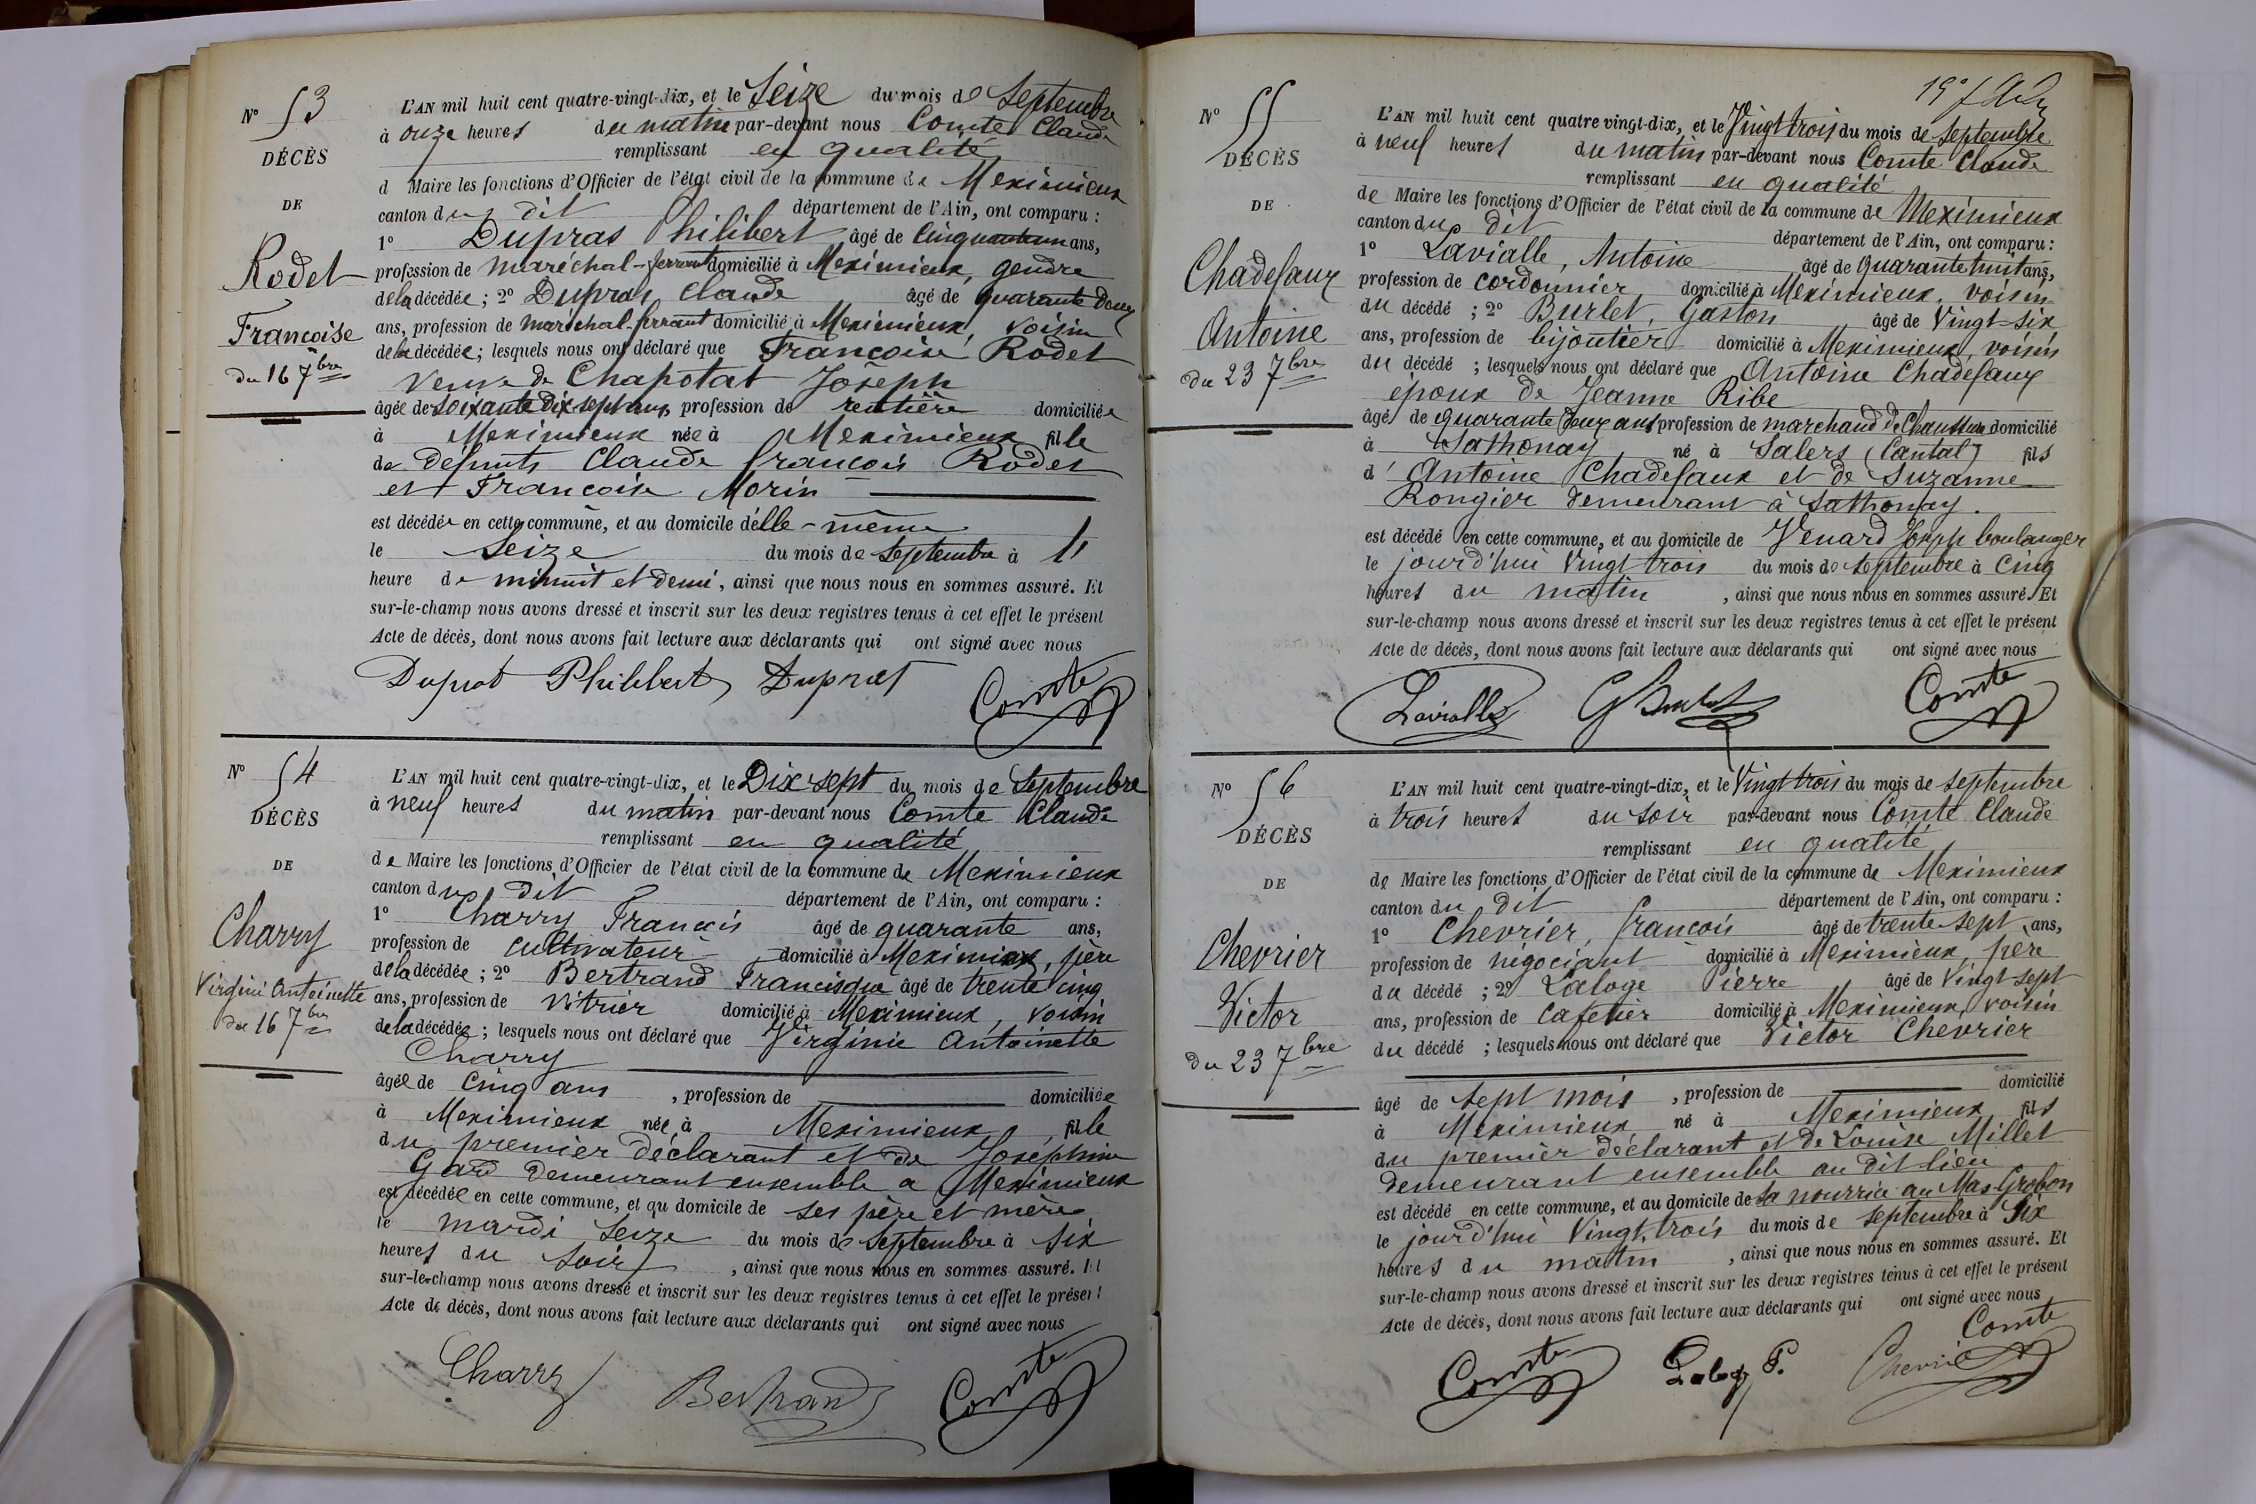 Nº 53
DÉCÈS
DE
Rodet
Françoise
du 16 7bre
L'AN mil huit cent quatre-vingt-dix, et le Seize du mois de Septembre
à onze heures du matin par-devant nous Comte Claude
remplissant en qualité
d Maire les fonctions d'Officier de l'état civil de la commune de Meximieux
canton du dit département de l'Ain, ont comparu :
1º Dupras Philibert âgé de Cinquante un ans,
profession de maréchal-ferrant domicilié à Meximieux, gendre
de la décédée ; 2º Dupras Claude âgé de quarante deux
ans, profession de maréchal-ferrant domicilié à Meximieux, voisin
de la décédée ; lesquels nous ont déclaré que Françoise Rodet
Veuve de Chapotat Joseph
âgée de soixante dix sept ans, profession de rentière domiciliée
à Meximieux née à Meximieux fille
de défunts Claude françois Rodet
et Françoise Morin
est décédée en cette commune, et au domicile d'elle-même
le Seize du mois de Septembre à
heure de minuit et demi, ainsi que nous nous en sommes assuré. Et
sur-le-champ nous avons dressé et inscrit sur les deux registres tenus à cet effet le présent
Acte de décès, dont nous avons fait lecture aux déclarants qui ont signé avec nous
Duprat Philibert Duprat Comte
Nº 54
DÉCÈS
DE
Charry
Virginie Antoinette
du 16 7bre
L'AN mil huit cent quatre-vingt-dix, et le Dix sept du mois de Septembre
à neuf heures du matin par-devant nous Comte Claude
remplissant en qualité
de Maire les fonctions d'Officier de l'état civil de la commune de Meximieux
canton du dit département de l'Ain, ont comparu :
1º Charry Francois âgé de quarante ans,
profession de cultivateur domicilié à Meximieux, père
de la décédée ; 2º Bertrand Francisque âgé de trente cinq
ans, profession de vitrier domicilié à Meximieux, voisin
de la décédée ; lesquels nous ont déclaré que Virginie Antoinette
Charry
âgée de Cinq ans , profession de domiciliée
à Meximieux née à Meximieux fille
du premier déclarant et de Joséphine
Gard demeurant ensemble a Meximieux
est décédée en cette commune, et au domicile de ses père et mère
le mardi seize du mois de Septembre à six
heures du soir , ainsi que nous nous en sommes assuré. Et
sur-le-champ nous avons dressé et inscrit sur les deux registres tenus à cet effet le présent
Acte de décès, dont nous avons fait lecture aux déclarants qui ont signé avec nous
Charry Bertrand Comte
Nº 55
DÉCÈS
DE
Chadefaux
Antoine
du 23 7bre
L'AN mil huit cent quatre vingt-dix, et le Vingt trois du mois de septembre
à neuf heures du matin par-devant nous Comte Claude
remplissant en qualité
de Maire les fonctions d'Officier de l'état civil de la commune de Meximieux
canton du dit département de l'Ain, ont comparu :
1º Lavialle, Antoine âgé de quarante huit ans,
profession de cordonnier domicilié à Meximieux, voisin
du décédé ; 2º Burlet, Gaston âgé de Vingt-six
ans, profession de bijoutier domicilié à Meximieux, voisin
du décédé ; lesquels nous ont déclaré que Antoine Chadefaux
époux de Jeanne Ribe
âgé de quarante deux ans profession de marchand de Chaussures domicilié
à Sathonay né à Salers (Cantal) fils
d' Antoine Chadefaux et de Suzanne
Rongier demeurant à Sathonay.
est décédé en cette commune, et au domicile de Venard Joseph boulanger
le jourd'hui Vingt trois du mois de septembre à Cinq
heures du matin , ainsi que nous nous en sommes assuré. Et
sur-le-champ nous avons dressé et inscrit sur les deux registres tenus à cet effet le présent
Acte de décès, dont nous avons fait lecture aux déclarants qui ont signé avec nous
Lavialle G Burlet Comte
Nº 56
DÉCÈS
DE
Chevrier
Victor
du 23 7bre
L'AN mil huit cent quatre-vingt-dix, et le Vingt trois du mois de septembre
à trois heures du soir par-devant nous Comte Claude
remplissant en qualité
de Maire les fonctions d'Officier de l'état civil de la commune de Meximieux
canton du dit département de l'Ain, ont comparu :
1º Chevrier, françois âgé de trente sept ans,
profession de négociant domicilié à Meximieux, père
du décédé ; 2º Laloge Pierre âgé de Vingt sept
ans, profession de Cafetier domicilié à Meximieux, voisin
du décédé ; lesquels nous ont déclaré que Victor Chevrier
âgé de sept mois , profession de domicilié
à Meximieux né à Meximieux fils
du premier déclarant et de Louise Millet
demeurant ensemble au dit lieu
est décédé en cette commune, et au domicile de sa nourrice au Mas Grobon
le jourd'hui Vingt trois du mois de septembre à Six
heures du matin , ainsi que nous nous en sommes assuré. Et
sur-le-champ nous avons dressé et inscrit sur les deux registres tenus à cet effet le présent
Acte de décès, dont nous avons fait lecture aux déclarants qui ont signé avec nous
Comte
Comte Laloge P. Chevrier